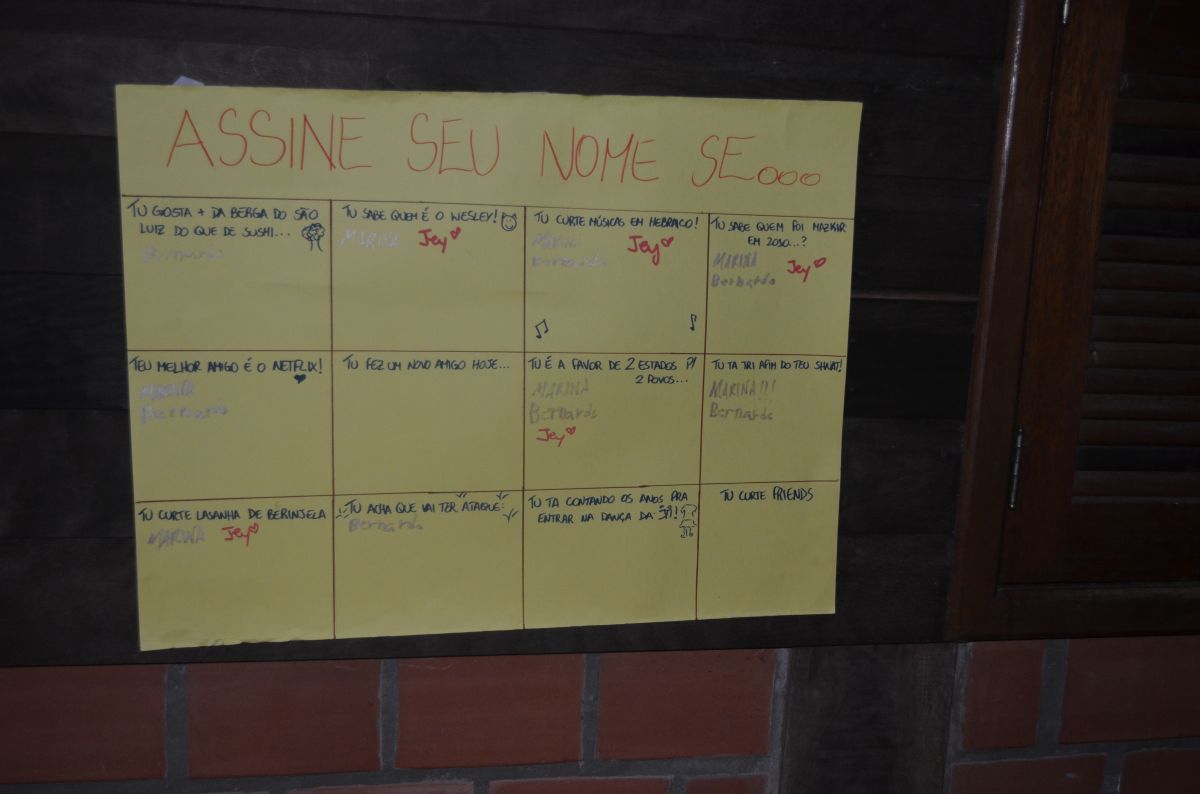 ASSINE SEU NOME SE...
TU GOSTA + DA BERGA DO SÃO
LUIZ DO QUE DE SUSHI...
Bernardo
TU SABE QUEM É O WESLEY!
MARINA Jey
TU CURTE MÚSICAS EM HEBRAICO!
Jey
Bernardo
TU SABE QUEM FOI MAZKIR
EM 2010...?
MARINA Jey
Bernardo
TEU MELHOR AMIGO É O NETFLIX!
MARINA
Bernardo
TU FEZ UM NOVO AMIGO HOJE...
TU É A FAVOR DE 2 ESTADOS P/
2 POVOS...
MARINA
Bernardo
Jey
TU TA TRI AFIM DO TEU SHNAT!
MARINA!!!
Bernardo
TU CURTE LASANHA DE BERINJELA
MARINA Jey
TU ACHA QUE VAI TER ATAQUE:
Bernardo
TU TA CONTANDO OS ANOS PRA
ENTRAR NA DANÇA DA
TU CURTE FRIENDS